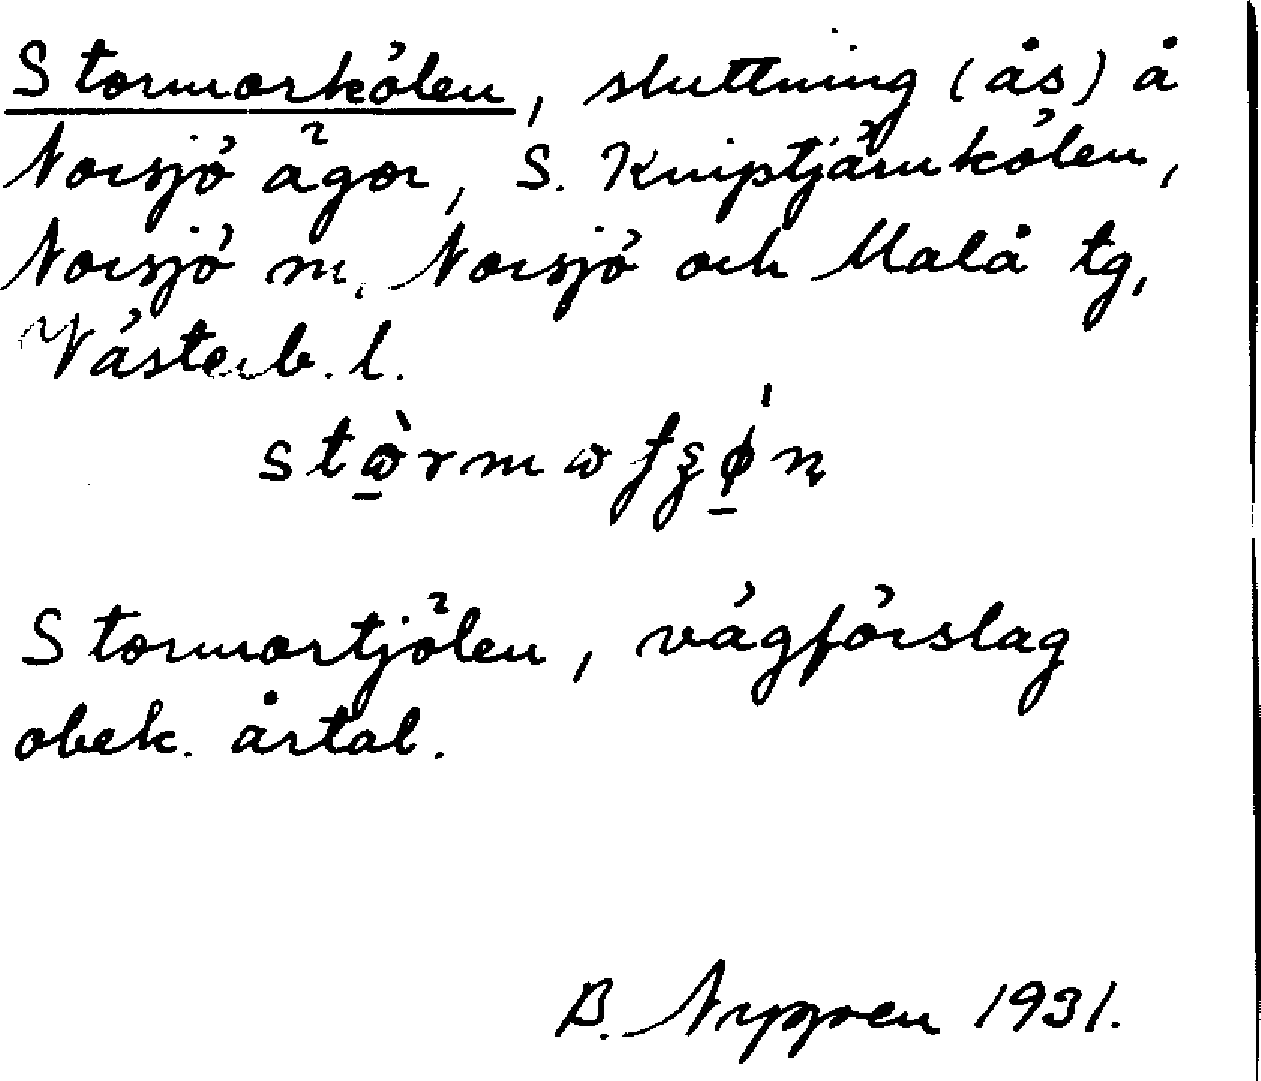 Stormorkölen, sluttning (ås) å
Norsjö ägor, S. Kniptjärnkölen,
Norsjö sn, Norsjö och Malå tg,
Västerb. l.
Stormortjölen, vägförslag
obek. årtal.
B. Nygren 1931.